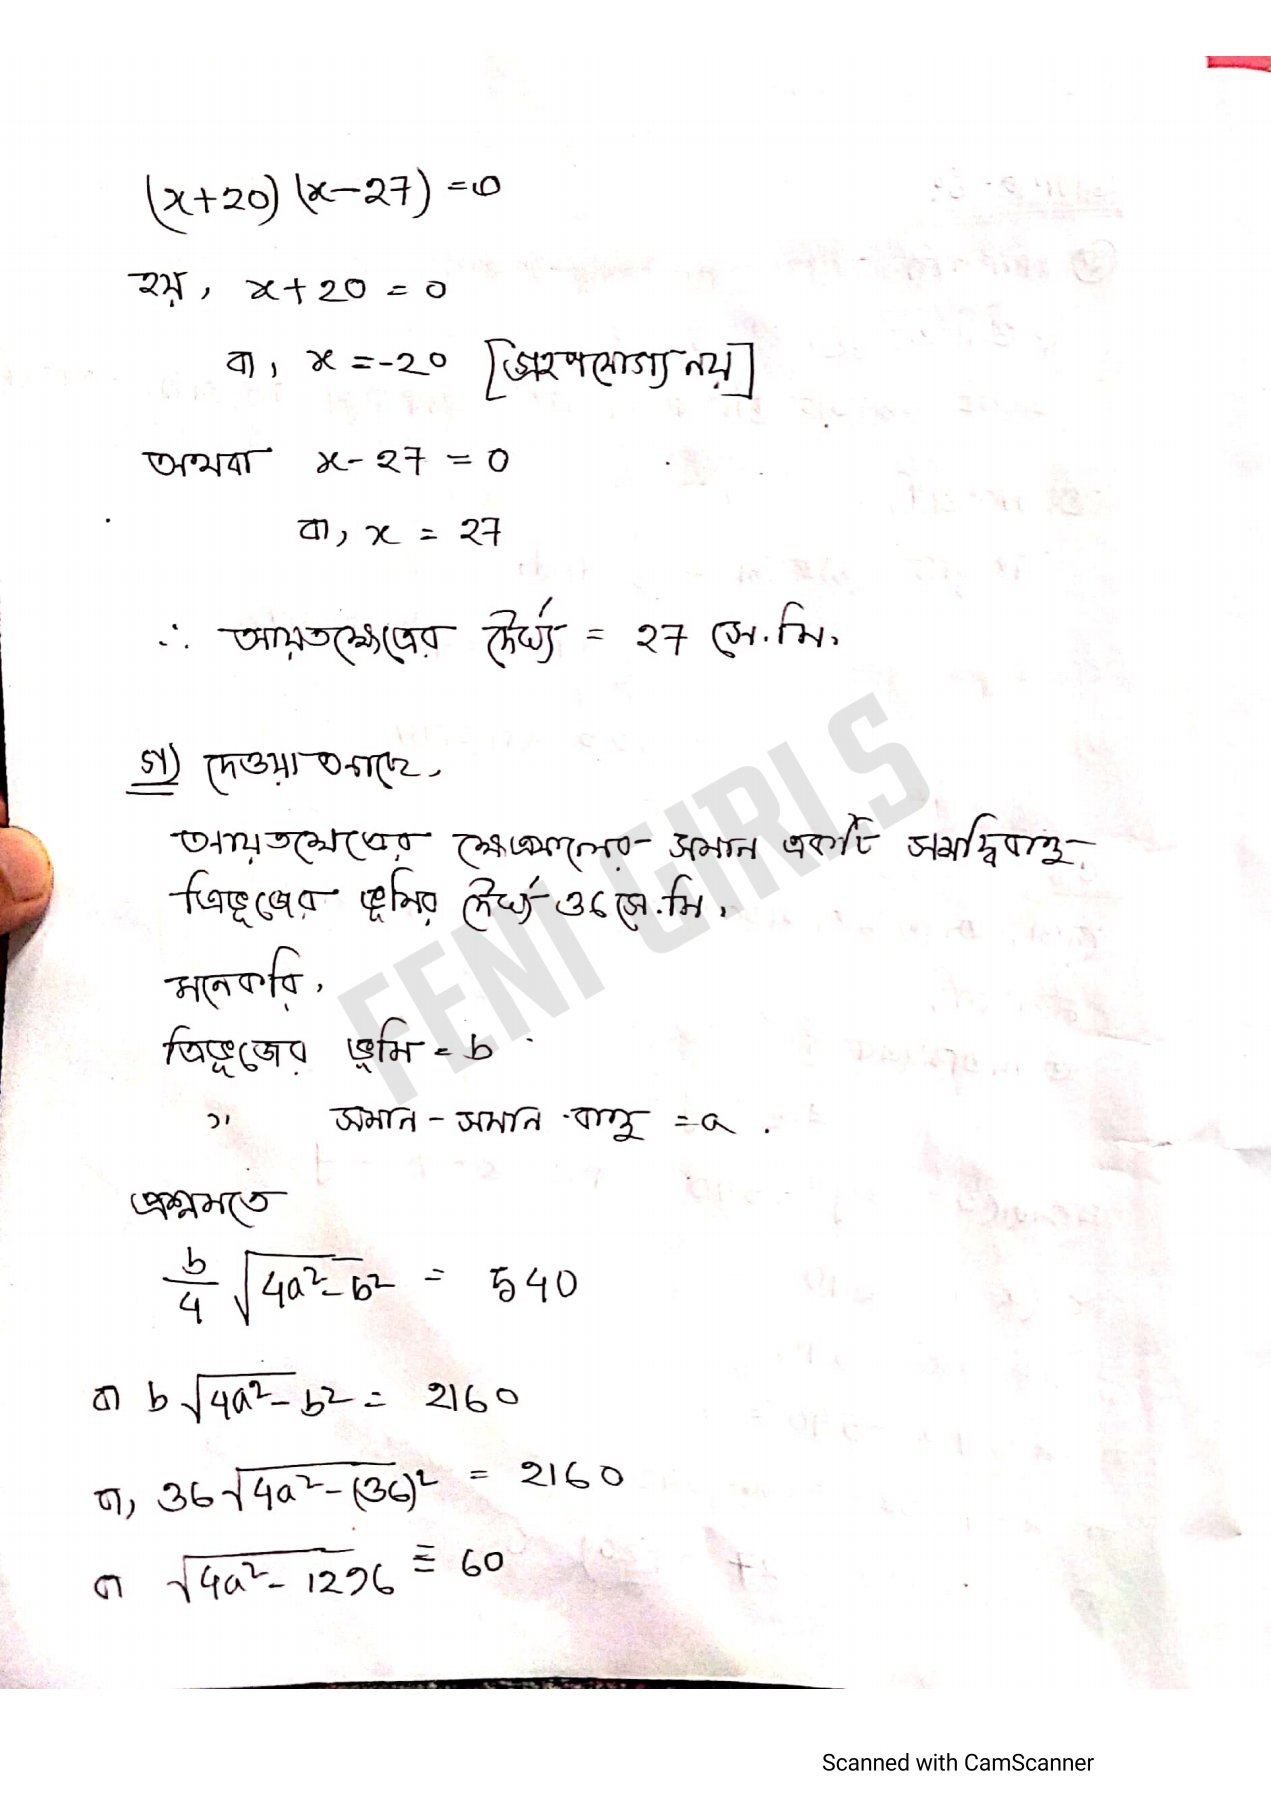 (x+20) (x-27) = 0
হয়, x+20 = 0
বা, x = -20 [গ্রহণযোগ্য নয়]
অথবা x - 27 = 0
বা, x = 27
∴ আয়তক্ষেত্রের দৈর্ঘ্য = 27 সে.মি.
গ) দেওয়া আছে,
আয়তক্ষেত্রের ক্ষেত্রফলের সমান একটি সমদ্বিবাহু
ত্রিভুজের ভূমির দৈর্ঘ্য 36 সে.মি.
মনেকরি,
ত্রিভুজের ভূমি = b
" সমান - সমান বাহু = a.
প্রশ্নমতে
b/4 √4a²-b² = 540
বা b√4a²-b² = 2160
বা, 36√4a²-(36)² = 2160
বা √4a²-1296 = 60
FENI GIRLS
Scanned with CamScanner